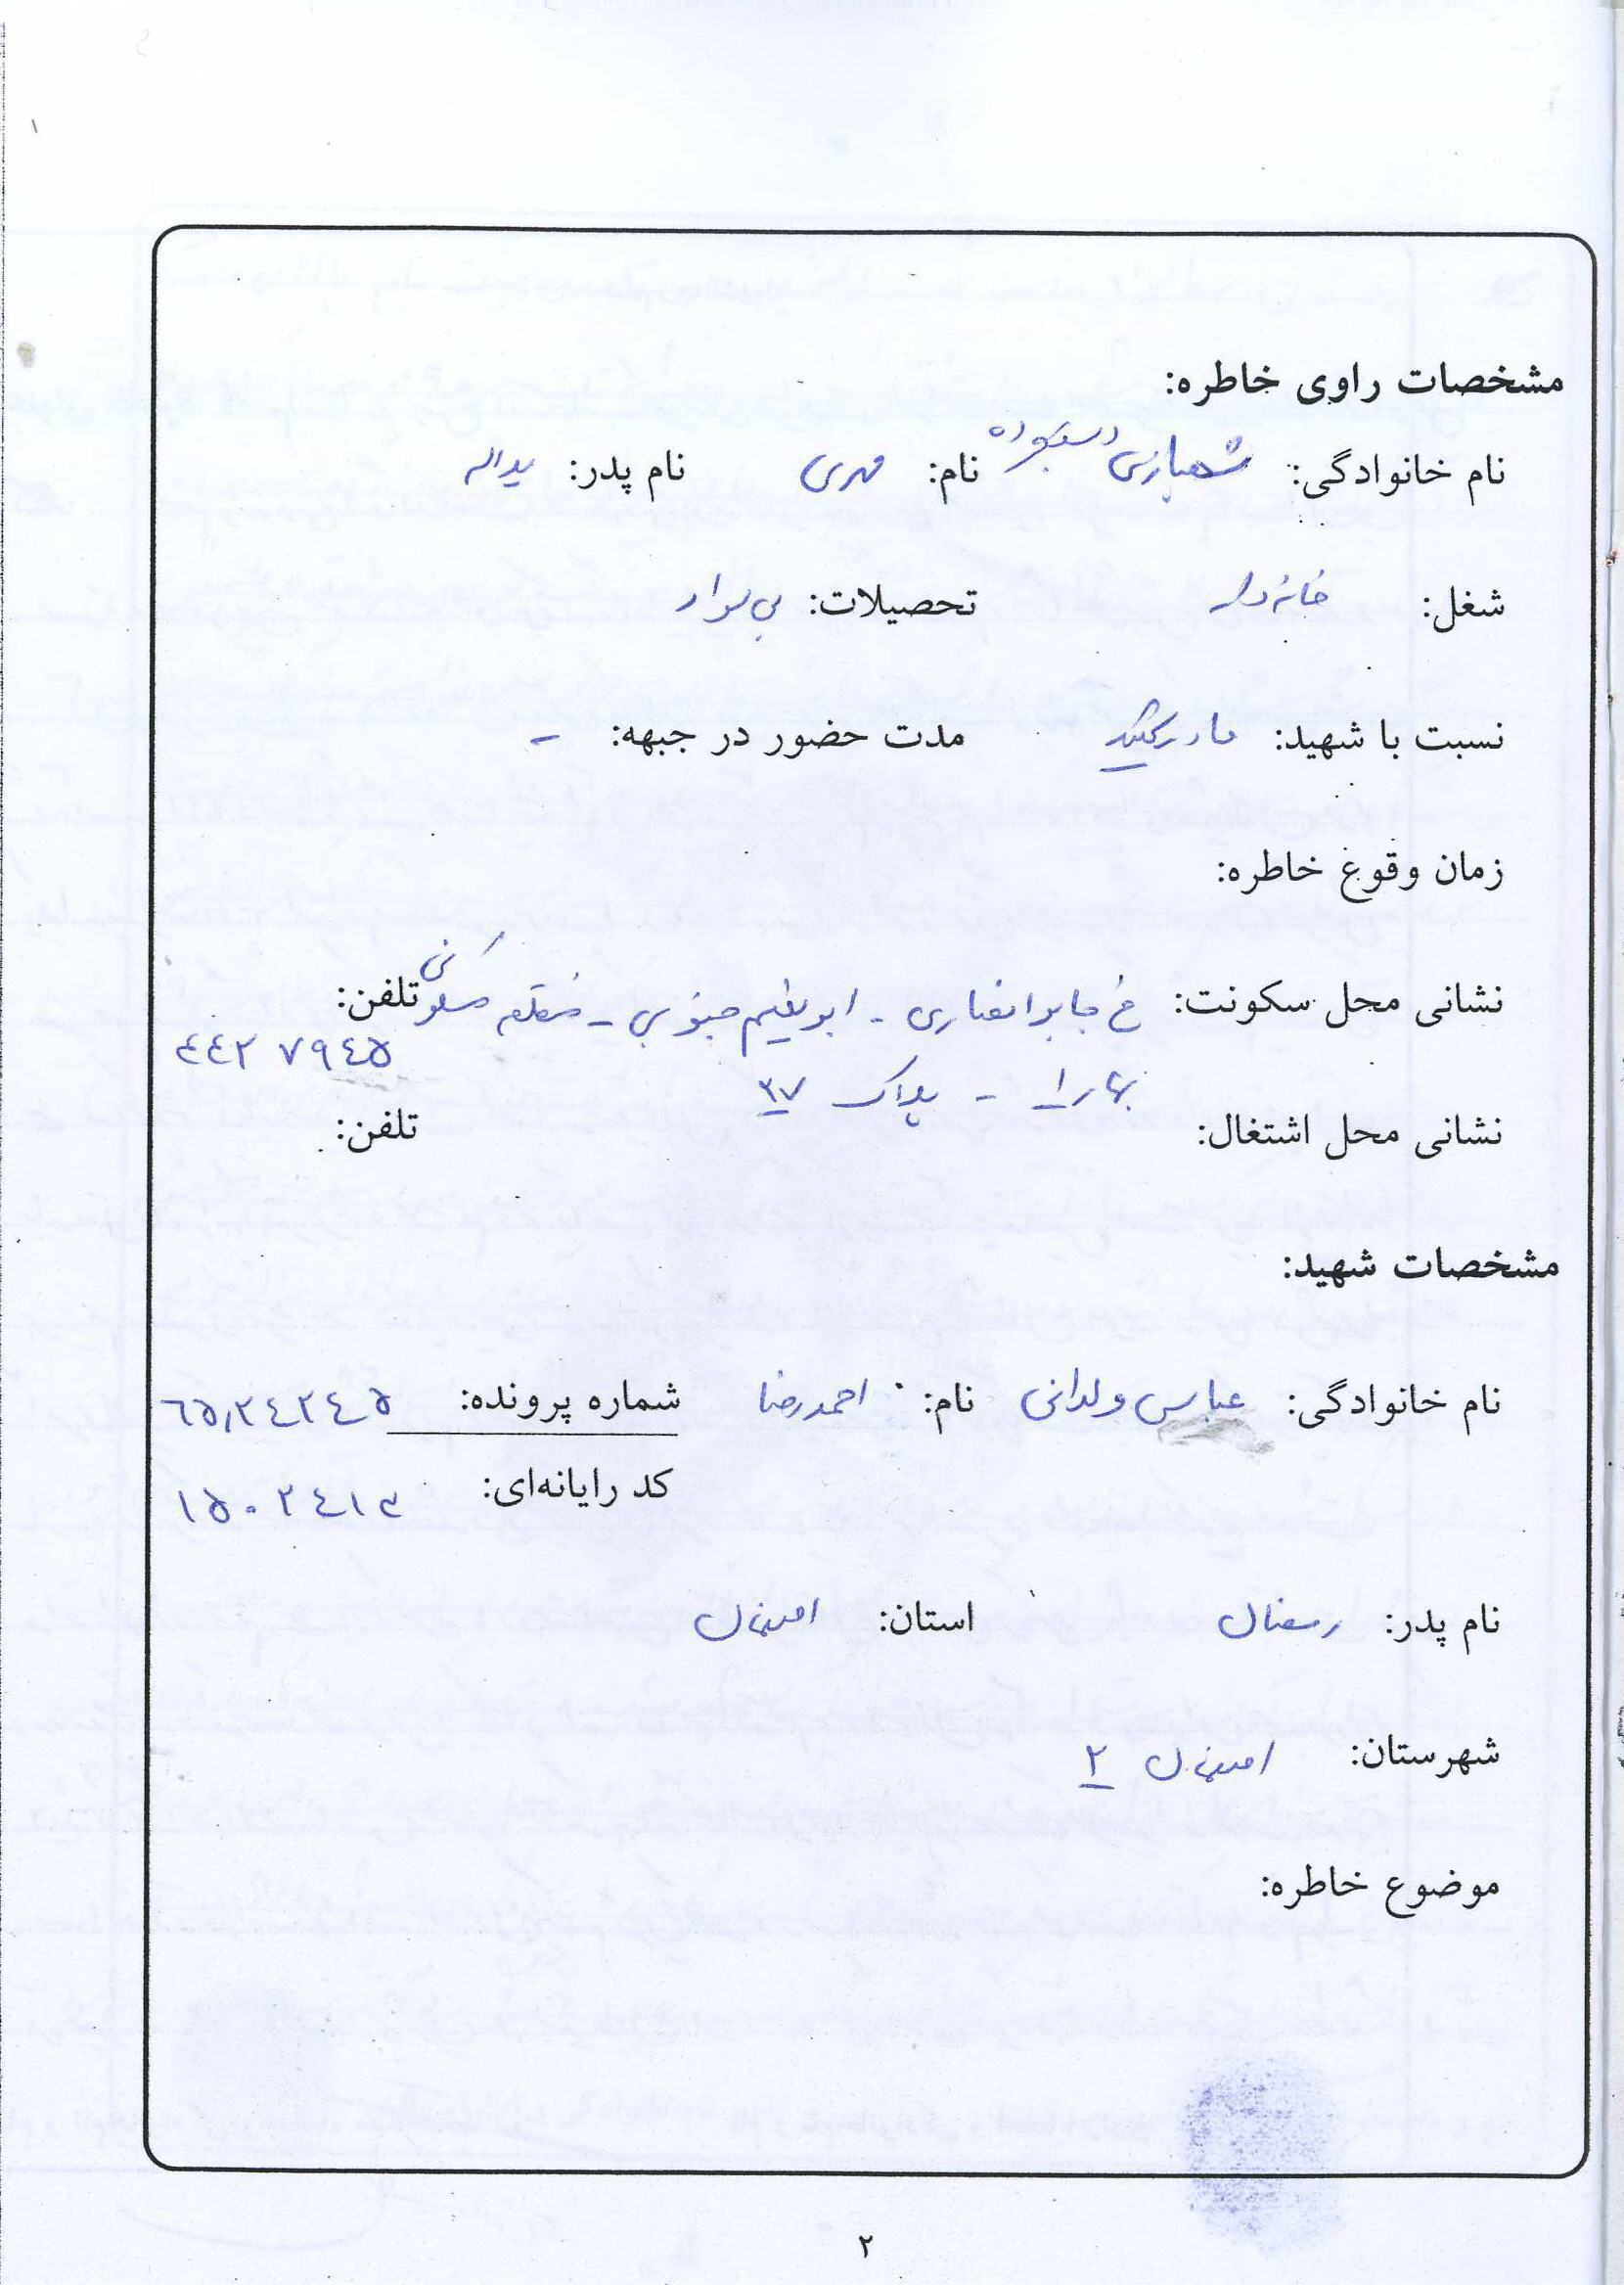 مشخصات راوی خاطره:
نام خانوادگی: شهبازی دستجرده نام: مهری نام پدر: یداله
شغل: خانه دار تحصیلات: بی سواد
نسبت با شهید: مادر شهید مدت حضور در جبهه: -
زمان وقوع خاطره:
نشانی محل سکونت: خ جابر انصاری - ابونعیم جنوبی - منطقه مسکونی تلفن:
٤٤٢٧٩٤٥
بهار ١ - پلاک ٣٧
نشانی محل اشتغال: تلفن:
مشخصات شهید:
نام خانوادگی: عباسی ولدانی نام: احمدرضا شماره پرونده: ٦٥,٢٤٢٤٥
کد رایانه‌ای:
نام پدر: رمضان استان: اصفهان
شهرستان: اصفهان ٢
موضوع خاطره:
٢